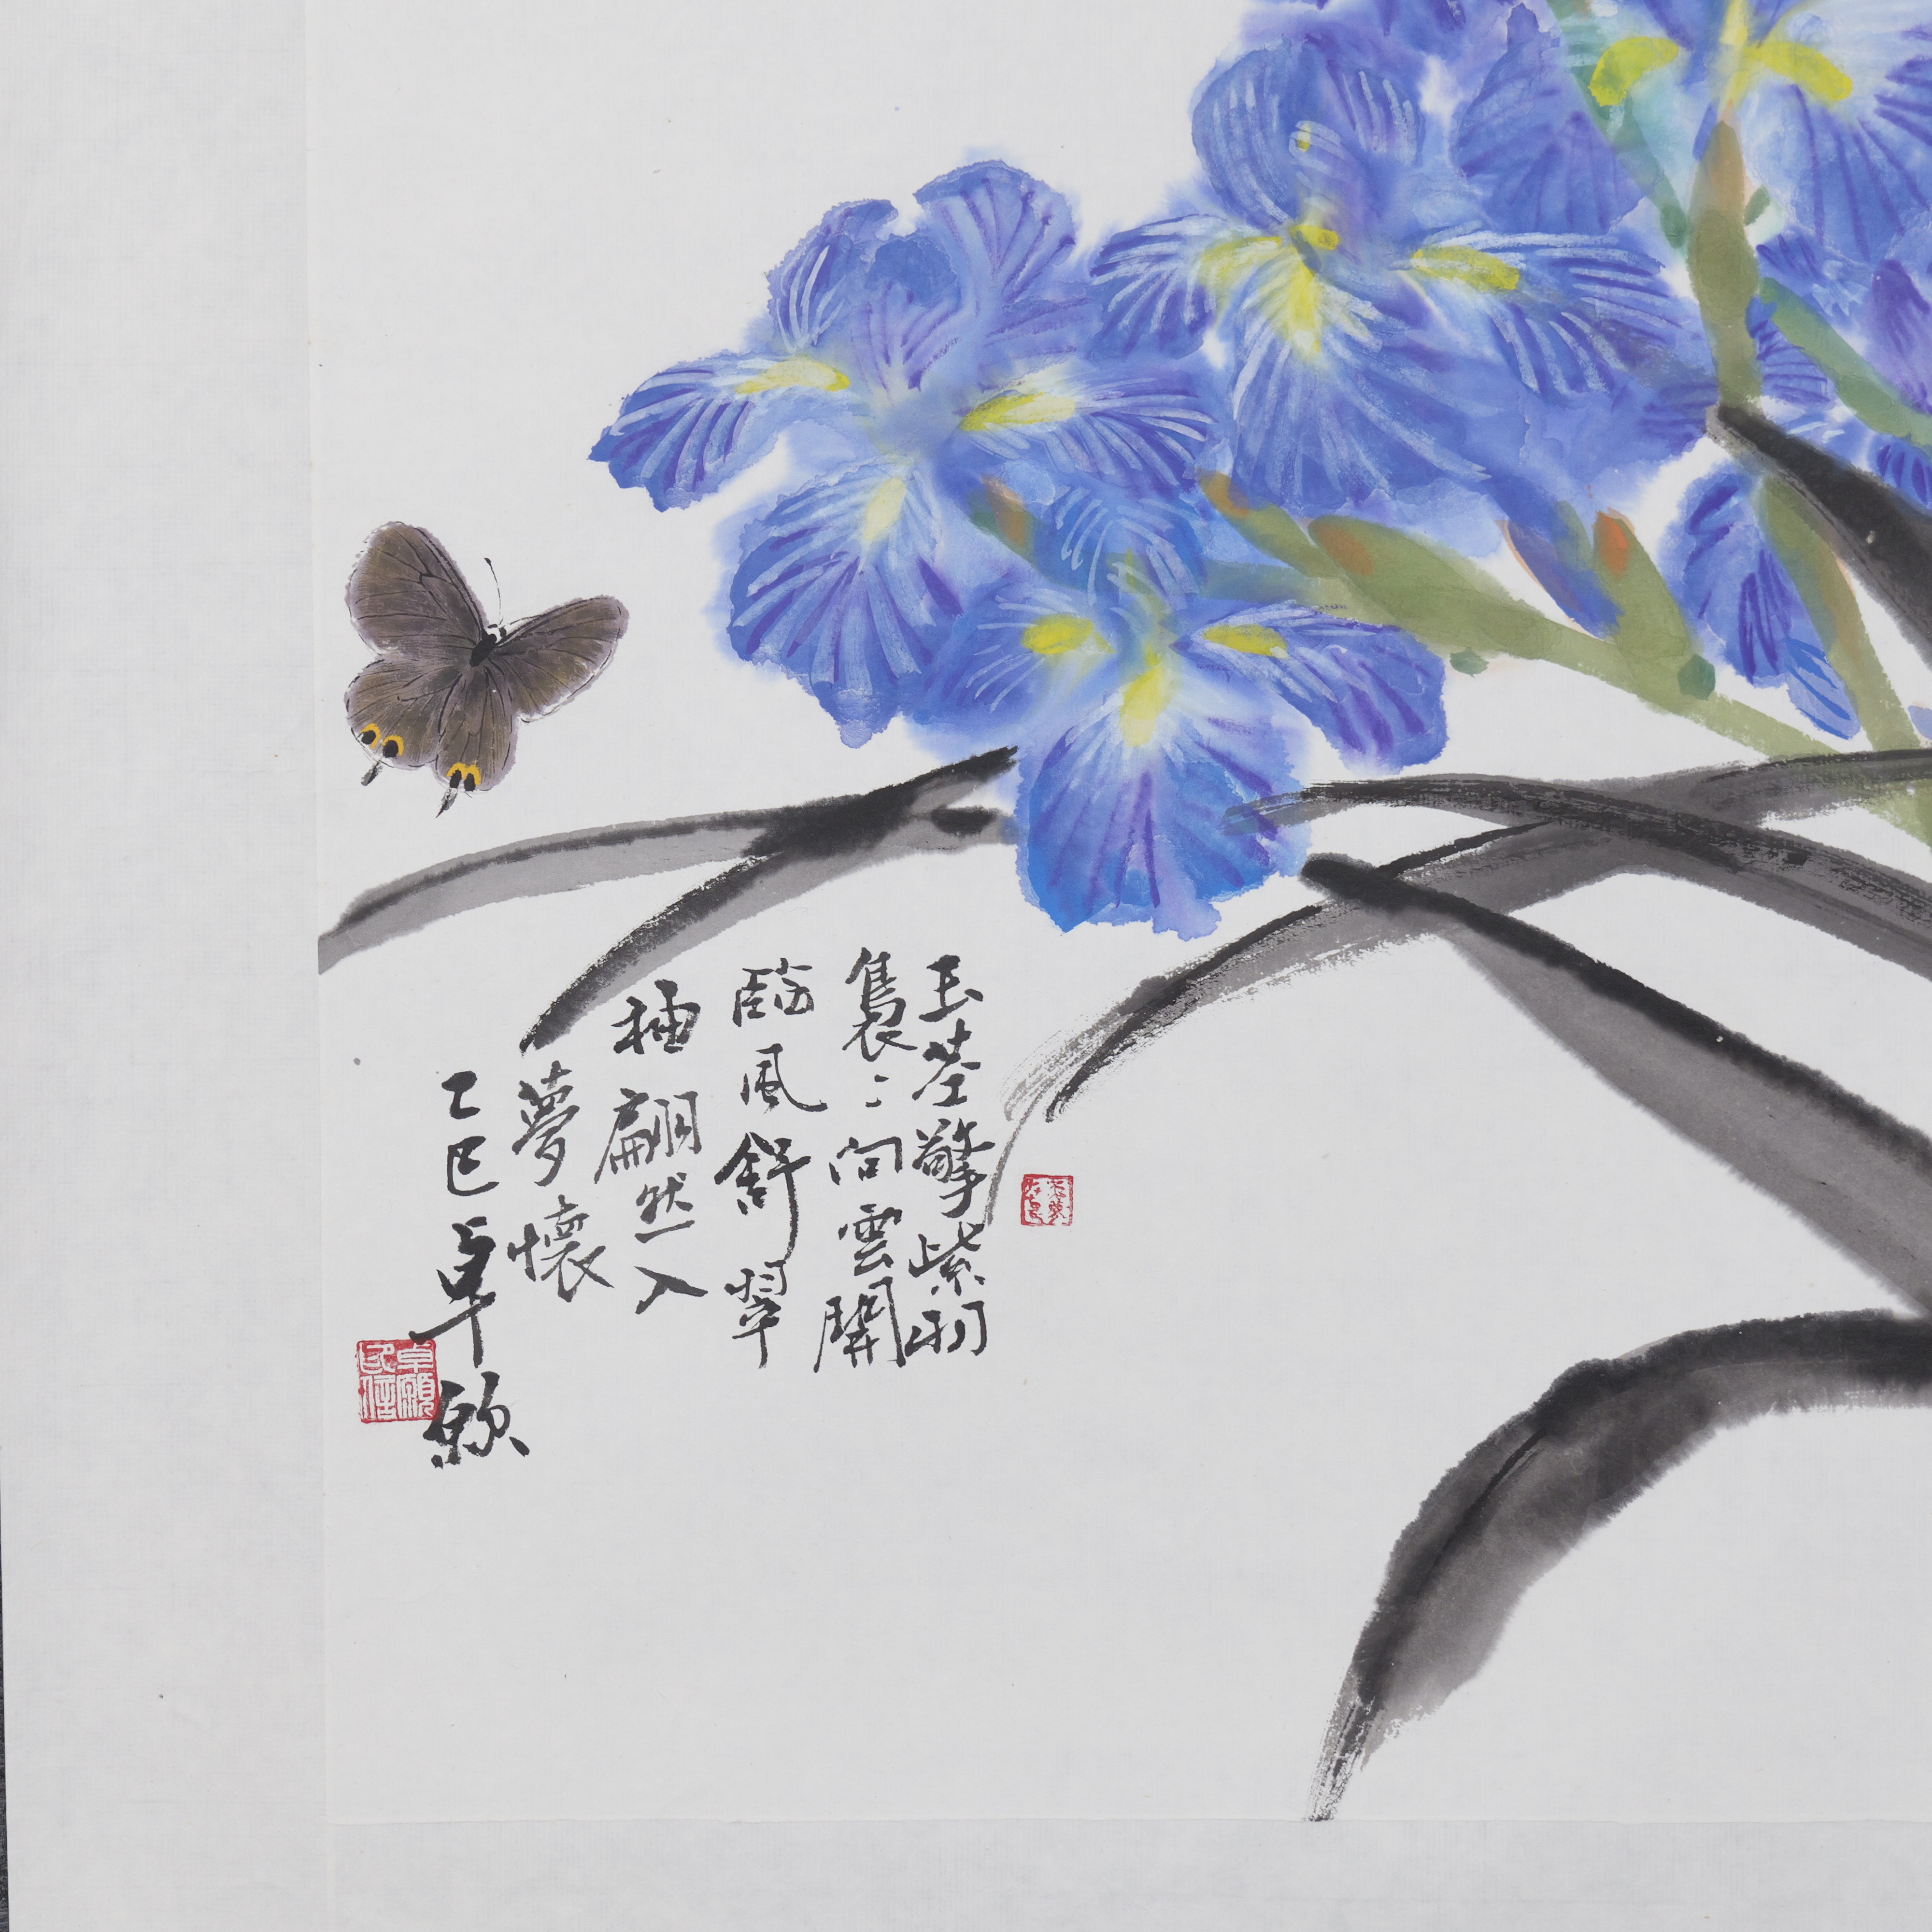 玉莖擎紫羽
裊〻向雲開
臨風舒翠
袖翩然入
夢懷
乙巳卓願
卓願印信